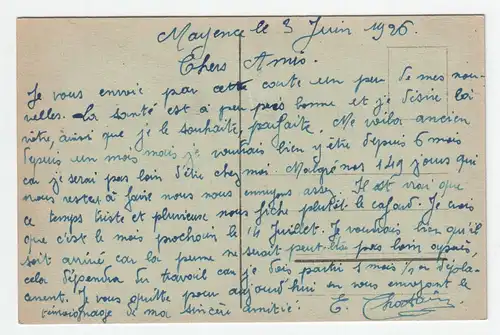 Mayence le 3 Juin 1926
Chers Amis.
Je vous envoie par cette carte un peu de mes nou-
velles. La santé est à peu près bonne et je désire la
vôtre, ainsi que je le souhaite, parfaite. Me voila ancien
depuis un mois mais je voudrais bien y être depuis 6 mois
car je serai pas loin d'être chez moi. Malgré nos 149 jours qui
nous restez à faire nous nous ennuyons assez. Il est vrai que
ce temps triste et pluvieux nous fiche plutôt le cafard. Je crois
que c'est le mois prochain le 14 Juillet. Je voudrais bien qu'il
soit arrivé car la perme ne serait peut-être pas loin après,
cela dépendra du travail car je dois partir 1 mois 1/2 en dépla-
cement. Je vous quitte pour aujourd'hui en vous envoyant le
témoignage de ma sincère amitié. E.